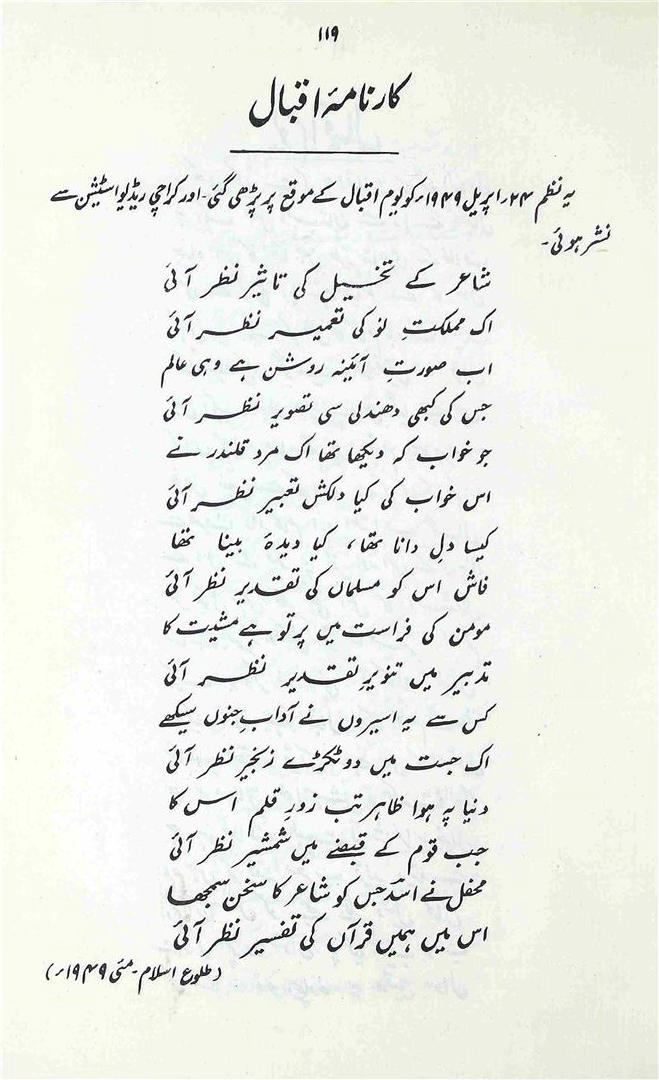 ۱۱۹
کارنامۂ اقبال
یہ نظم ۲۴؍ اپریل ۱۹۴۹؍ کو یوم اقبال کے موقع پر پڑھی گئی۔ اور کراچی ریڈیو اسٹیشن سے
نشر ہوئی۔
شاعر کے تخیل کی تاثیر نظر آئی
اک مملکتِ نو کی تعمیر نظر آئی
اب صورتِ آئینہ روشن ہے وہی عالم
جس کی کبھی دھندلی سی تصویر نظر آئی
جو خواب کہ دیکھا تھا اک مرد قلندر نے
اس خواب کی کیا دلکش تعبیر نظر آئی
کیسا دلِ دانا تھا، کیا دیدۂ بینا تھا
فاش اس کو مسلماں کی تقدیر نظر آئی
مومن کی فراست میں پرتو ہے مشیت کا
تدبیر میں تنویرِ تقدیر نظر آئی
کس سے یہ اسیروں نے آدابِ جنوں سیکھے
اک جست میں دو ٹکڑے زنجیر نظر آئی
دنیا پہ ہوا ظاہر تب زورِ قلم اس کا
جب قوم کے قبضے میں شمشیر نظر آئی
محفل نے اسدؔ جس کو شاعر کا سخن سمجھا
اس میں ہمیں قرآں کی تفسیر نظر آئی
(طلوع اسلام۔ مئی ۱۹۴۹؍)